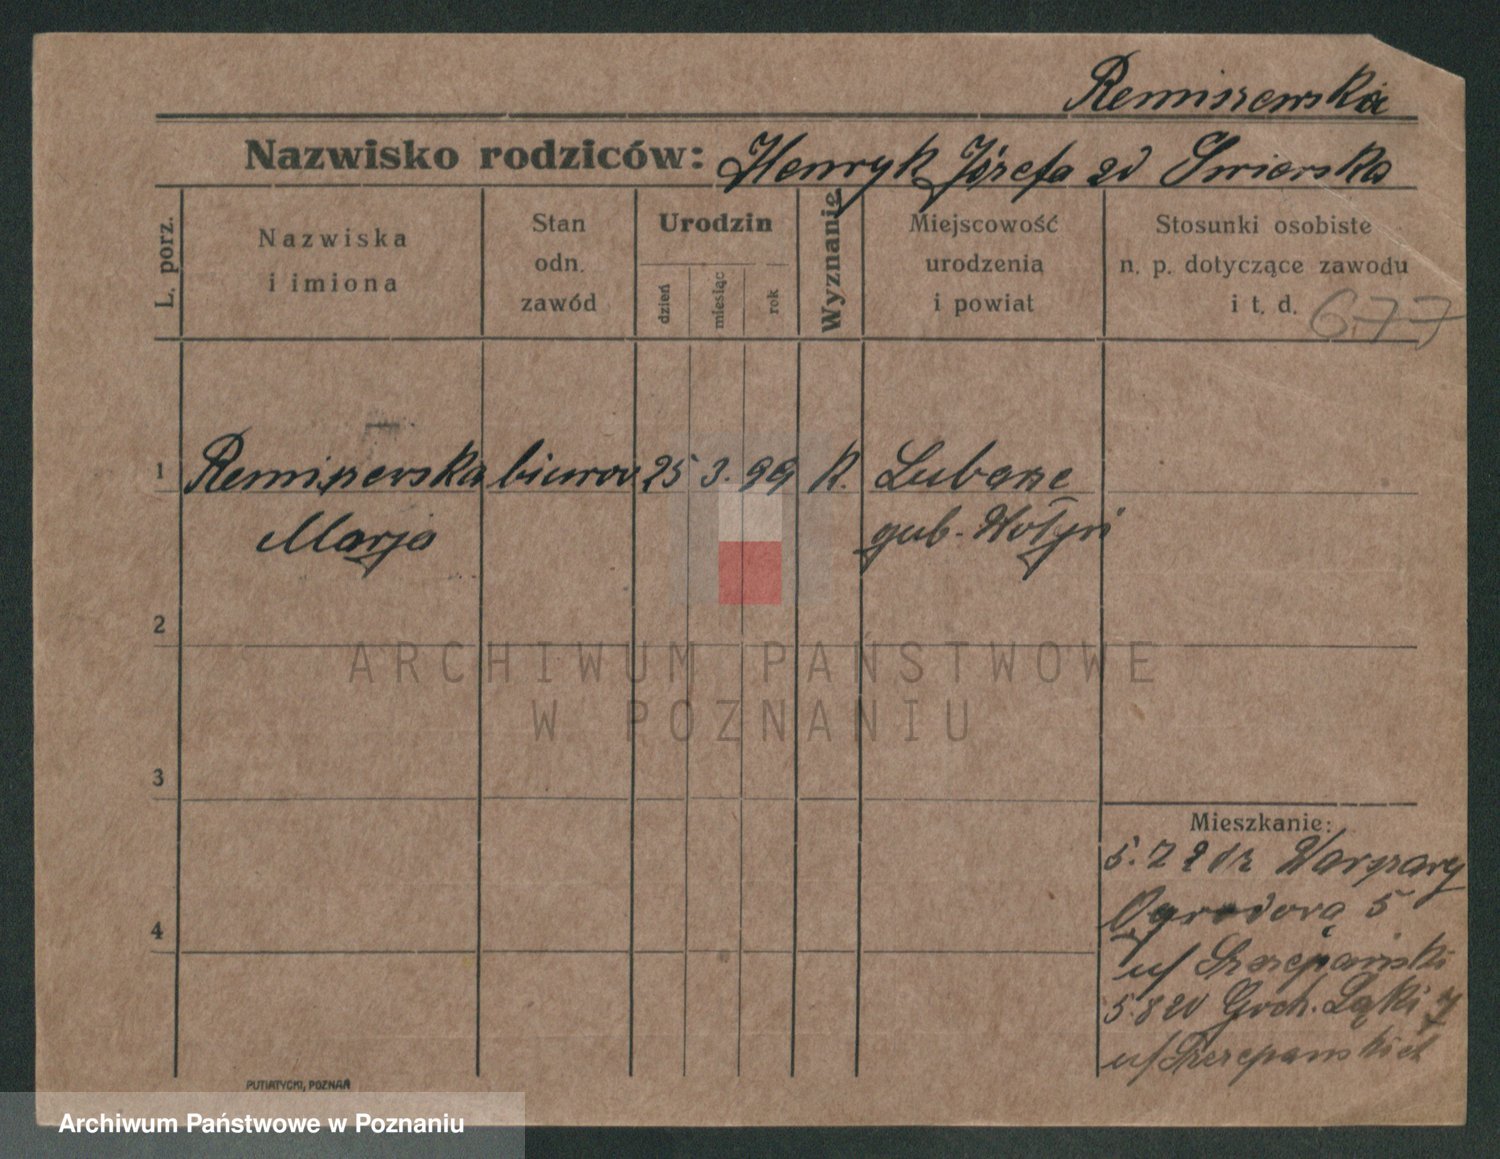 Remiszewska
Nazwisko rodziców: Henryk Józefa zd Swierska
L. porz.
Nazwiska
i imiona
Stan
odn.
zawód
Urodzin
dzień
miesiąc
rok
Wyznanie
Miejscowość
urodzenia
i powiat
Stosunki osobiste
n. p. dotyczące zawodu
i t. d. 677
1 Remiszewska biurow 25 3. 99 R.
Marja
gub. Wołyń
2
3
4
Mieszkanie:
Warszawy
Ogrodową 5
u/ Szczepański
Goch. Łąki 7
u/ Szczepanskich
PUTIATYCKI, POZNAŃ
ARCHIWUM PAŃSTWOWE
W POZNANIU
Archiwum Państwowe w Poznaniu